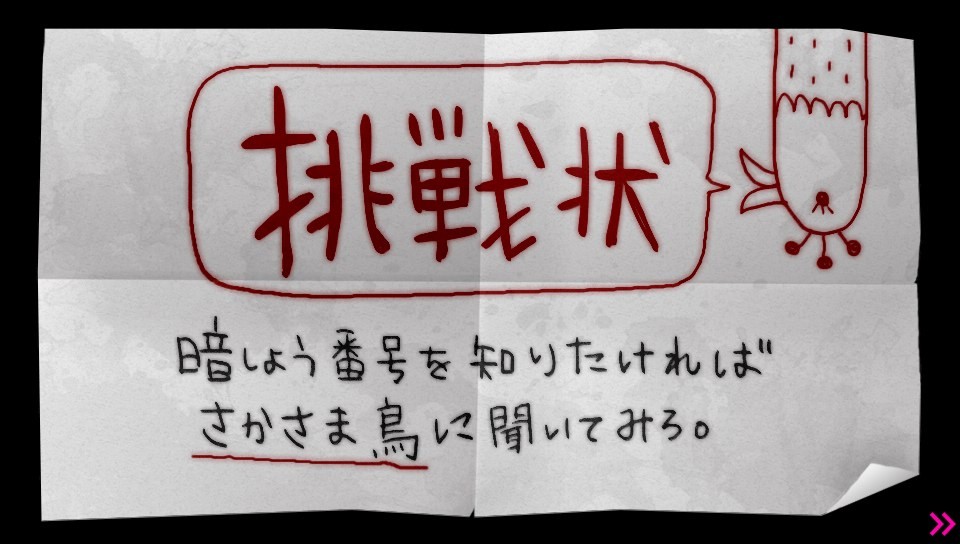 挑戦状
暗しょう番号を知りたければ
さかさま鳥に聞いてみろ。